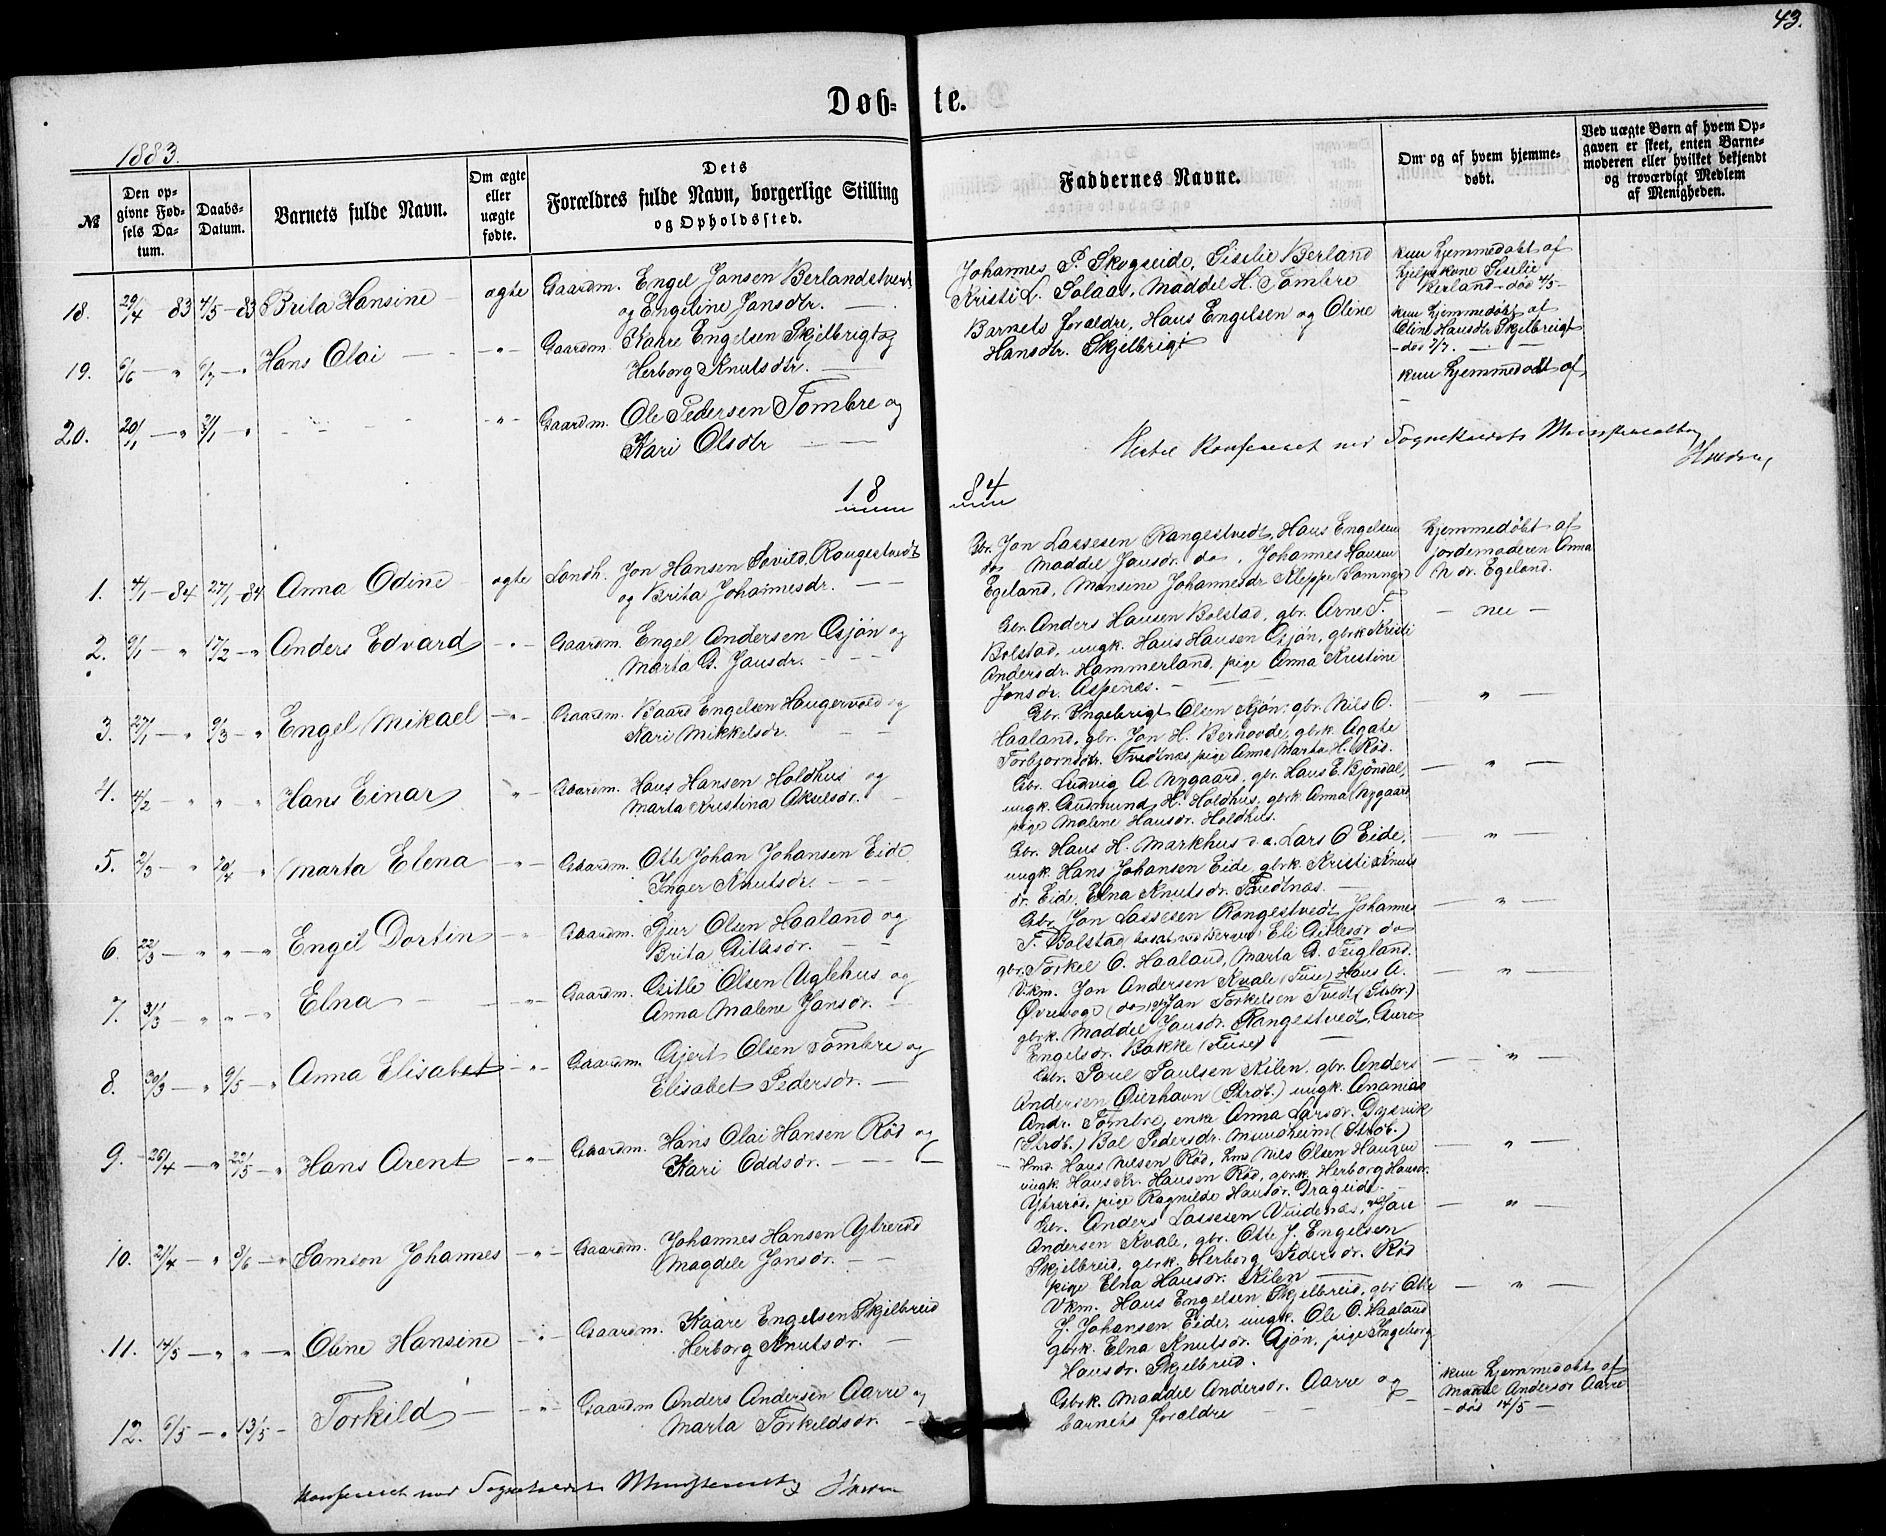 43.
Døb- te.
1883.
№
Den opgivne Fødsels Datum.
Daabs-Datum.
Barnets fulde Navn.
Om ægte eller uægte fødte.
Dets Forældres fulde Navn, borgerlige Stilling og Opholdssted.
Faddernes Navne.
Om og af hvem hjemmedøbt.
Ved uægte Børn af hvem Opgaven er skeet, enten Barnemoderen eller hvilket bekjendt og troværdigt Medlem af Menigheden.
18. 29/4 - 83 4/5 - 83 Brita Hansine ægte Gaardm. Engel Jansen Berlandstveit
og Engeline Jansdtr.
Johannes P. Skogseide, Sisilie Berland
Kristi L. Solaas, Maddel H. Tombre
kun hjemmedøbt af
hjelpekone Sisilie
Berland - død 4/5 -
19. 6/6 - " 6/7 - " Hans Olai - " - Gaardm. Kaare Engelsen Skjelbrigt og
Herborg Knutsdtr.
Barnets forældre, Hans Engelsen og Oline
Hansdtr. Skjelbrigt
kun hjemmedøbt af
Oline Hansdtr Skjelbreigt
- død 7/7. -
20. 20/11 - " - " - " - Gaardm. Ole Pedersen Tombre og
Kari Olsdtr
kun hjemmedøbt af
Hertil konfereret med Sognekaldets Ministerialbog
18 84
1. 4/1 - 84 27/1 - 84 Anna Odine ægte Jon Hansen Rangestvedt
og Brita Johannesdr.
Gbr. Jon Lassesen Rangestvedt, Hans Engelsen
do Maddel Jansdr. do, Johannes Hansen
Egeland, Mansine Johannesdr Kleppe
hjemmedøbt af
jordemoderen Anna
N. dr. Egeland.
2. 9/1 - " 17/2 - " Anders Edvard - " - Gaardm. Engel Andersen Gjøn og
Marta G. Jansdr.
Gbr. Anders Hansen Bolstad, gbr. Arne T.
Bolstad, ungk. Hans Hansen Gjøn, gbrk Kristi
Andersdr. Hammerland, pige Anna Kristine
Jonsdr. Aspenæs.
- nei -
3. 27/1 - " 9/3 - " Engel Mikael - " - Gaardm. Baard Engelsen Haugervold og
Kari Mikkelsdr.
Gbr. Ingebrigt Olsen Gjøn, gbr. Nils O.
Haaland, gbr. Jon H. Berhovde, gbrk. Agate
Torbjørnsdtr. Tvedtnæs, pige Anna Marta H. Rød.
- " -
4. 4/2 - " " - " Hans Einar " - Gaardm. Hans Hansen Holdhus og
Marta Kristina Akselsdr.
Gbr. Ludvig A. Nygaard, gbr. Hans E. Bjøndal,
ungk. Gudmund H. Holdhus, gbrk. Anna Nygaard
pige Malene Hansdr. Holdhus.
- " -
5. 2/3 - " 20/4 - " Marta Elena - " - Gaardm. Otte Johan Johansen Eide,
Inger Knutsdr.
Gbr. Hans H. Markhus do. Lars O Eide,
ungk. Hans Johansen Eide, gbrk. Kristi Knuts
dr. Eide, Elna Knutsdr. Tvedtnæs.
- " -
6. 22/3 - " - " - " Engel Dortea - " Gaardm. Sjur Olsen Haaland og
Brita Gitlesdr.
Gbr. Jon Lassesen Rangestvedt, Johannes
T. Bolstad, bosat ved Bergen, Eli Gitlesdr do
gbr. Torkel O. Haaland, Marta G. Teigland.
- " -
7. 31/3 - " - " - " Elna - " - Gaardm. Gitle Olsen Uglehus og
Anna Malene Jansdr.
Vkm. Jon Andersen Kvale (Fuse) Hans A.
Øvrevage (do) Jan Torkelsen Tvedt (Strb.)
gbrk. Maddel Jansdr. Rangestvedt, Guro
Engelsdr. Bakke (Fuse)
- " -
8. 30/3 - " 9/5 - " Anna Elisabet - " - Gaardm. Gjert Olsen Tombre og
Elisabet Pedersdr.
Gbr. Poul Paulsen Kilen, gbr. Anders
Andersen Øierhavn (Strdb.) ungk. Ananias
Andr. Tombre, enke Anna Larsdr. Dysvik
(Strdb.) Bol Pedersdr. Mundheim (Strdb.)
- " -
9. 26/4 - " 22/5 - " Hans Arent - " - Gaardm. Hans Olai Hansen Rød og
Kari Oddsdr.
Hmd. Hans Nilsen Rød, hms Nils Olsen Haugen
ungk. Hans Kr. Hansen Rød, gbrk. Herborg Hansdr.
Ytrerød, pige Ragnilde Hansdr. Drageide
- " -
10. 21/4 - " 3/6 - " Samson Johannes - " - Gaardm. Johannes Hansen Ytrerød
Magdele Jonsdr.
Gbr. Anders Lassesen Vindenæs, Jan
Andersen Kvale, gbr. Otte J. Engelsen
Skjelbreid, gbrk. Herborg Pedersdr. Rød
pige Elna Hansdr. Kilen
- " -
11. 14/5 - " " - " Oline Hansine - " - Gaardm. Kaare Engelsen Skjelbreid
Herborg Knutsdr.
Vkm. Hans Engelsen Skjelbreid, gbr Otte
J. Johansen Eide, ungk. Ole O. Haaland
gbrk. Elna Knutsdr. Gjøn, pige Ingeborg
Hansdr. Skjelbreid.
- " -
12. 6/5 - " 13/5 - Torkild - " - Gaardm Anders Andersen Aarre og
Marta Torkildsdr.
Gbrk. Maddel Andersdr. Aarre og
barnets forældre
kun hjemmedøbt af
Maddel Andersdr Aarre
- død 14/5 -
Konfereret med Sognekaldets Ministerialbog